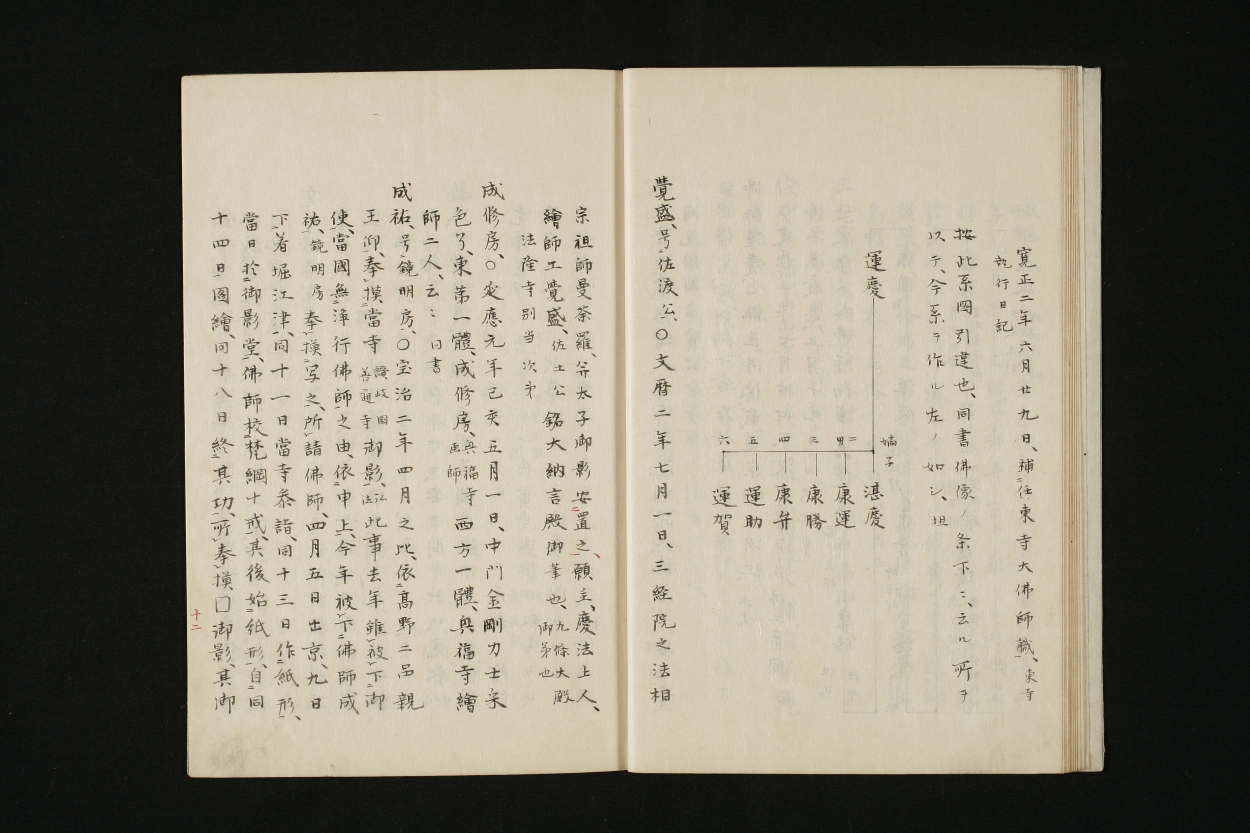 寛正二年六月廿九日、補任東寺大佛師職、東寺
執行日記
按此系図引違也、同書佛像ノ条下ニ、云ル所ヲ
以テ、今系ヲ作ル左ノ如シ、但
運慶
嫡子 湛慶
二男 康運
三 康勝
四 康弁
五 運助
六 運賀
覺盛、号佐渡公、〇文暦二年七月一日、三経院之法相
宗祖師曼荼羅、并太子御影安置之、願主、慶法上人、
繪師工覺盛、佐土公銘大納言殿御筆也、九條大殿御弟也
法隆寺別当次第
成修房、〇延應元年己亥五月一日、中門金剛力士采
色了、東第一體、成修房、興福寺画師西方一體、興福寺繪
師二人、云々同書
成祐、号鏡明房、〇宝治二年四月之比、依高野二品親
王仰、奉摸當寺讃岐國善通寺御影、弘法此事去年雖被下御
使、當國無浄行佛師之由、依申上、今年被下佛師成
祐、鏡明房奉摸写之、所請佛師、四月五日出京、九日
下著堀江津、同十一日當寺参詣、同十三日作紙形、
當日於御影堂、佛師授梵網十戒、其後始紙形、自同
十四日圖繪、同十八日終其功、所奉摸口御影、其御
十二